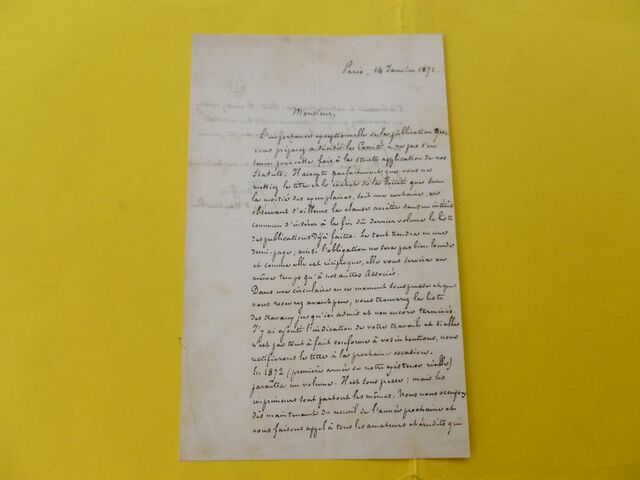 Paris, 14 Janvier 1871.
Monsieur,
L'importance exceptionnelle de la publication que
vous préparez a décidé le Comité à ne pas s'en
tenir pour cette fois à la stricte application de nos
Statuts. Il accepte parfaitement que vous ne
mettiez le titre et le cachet de la Société que sur
la moitié des exemplaires, soit une centaine, en
observant d'ailleurs la clause arrêtée dans un intérêt
commun d'insérer à la fin du dernier volume la liste
des publications déjà faites. Le tout tiendra en une
demi-page; ainsi l'obligation ne sera pas bien lourde
et comme elle est réciproque, elle vous servira en
même temps qu'à nos autres Associés.
Dans une circulaire en ce moment sous presse et que
vous recevrez avant peu, vous trouverez la liste
des travaux jusqu'ici admis et non encore terminés.
J'y ai ajouté l'indication de votre travail et si elle
n'est pas tout à fait conforme à vos intentions, nous
rectifierons le titre à la prochaine occasion.
En 1872 (première année de notre existence réelle)
paraîtra un volume. Il est sous presse; mais les
imprimeurs sont partout les mêmes. Nous nous occupons
dès maintenant du recueil de l'année prochaine et
nous faisons appel à tous les amateurs et érudits qui